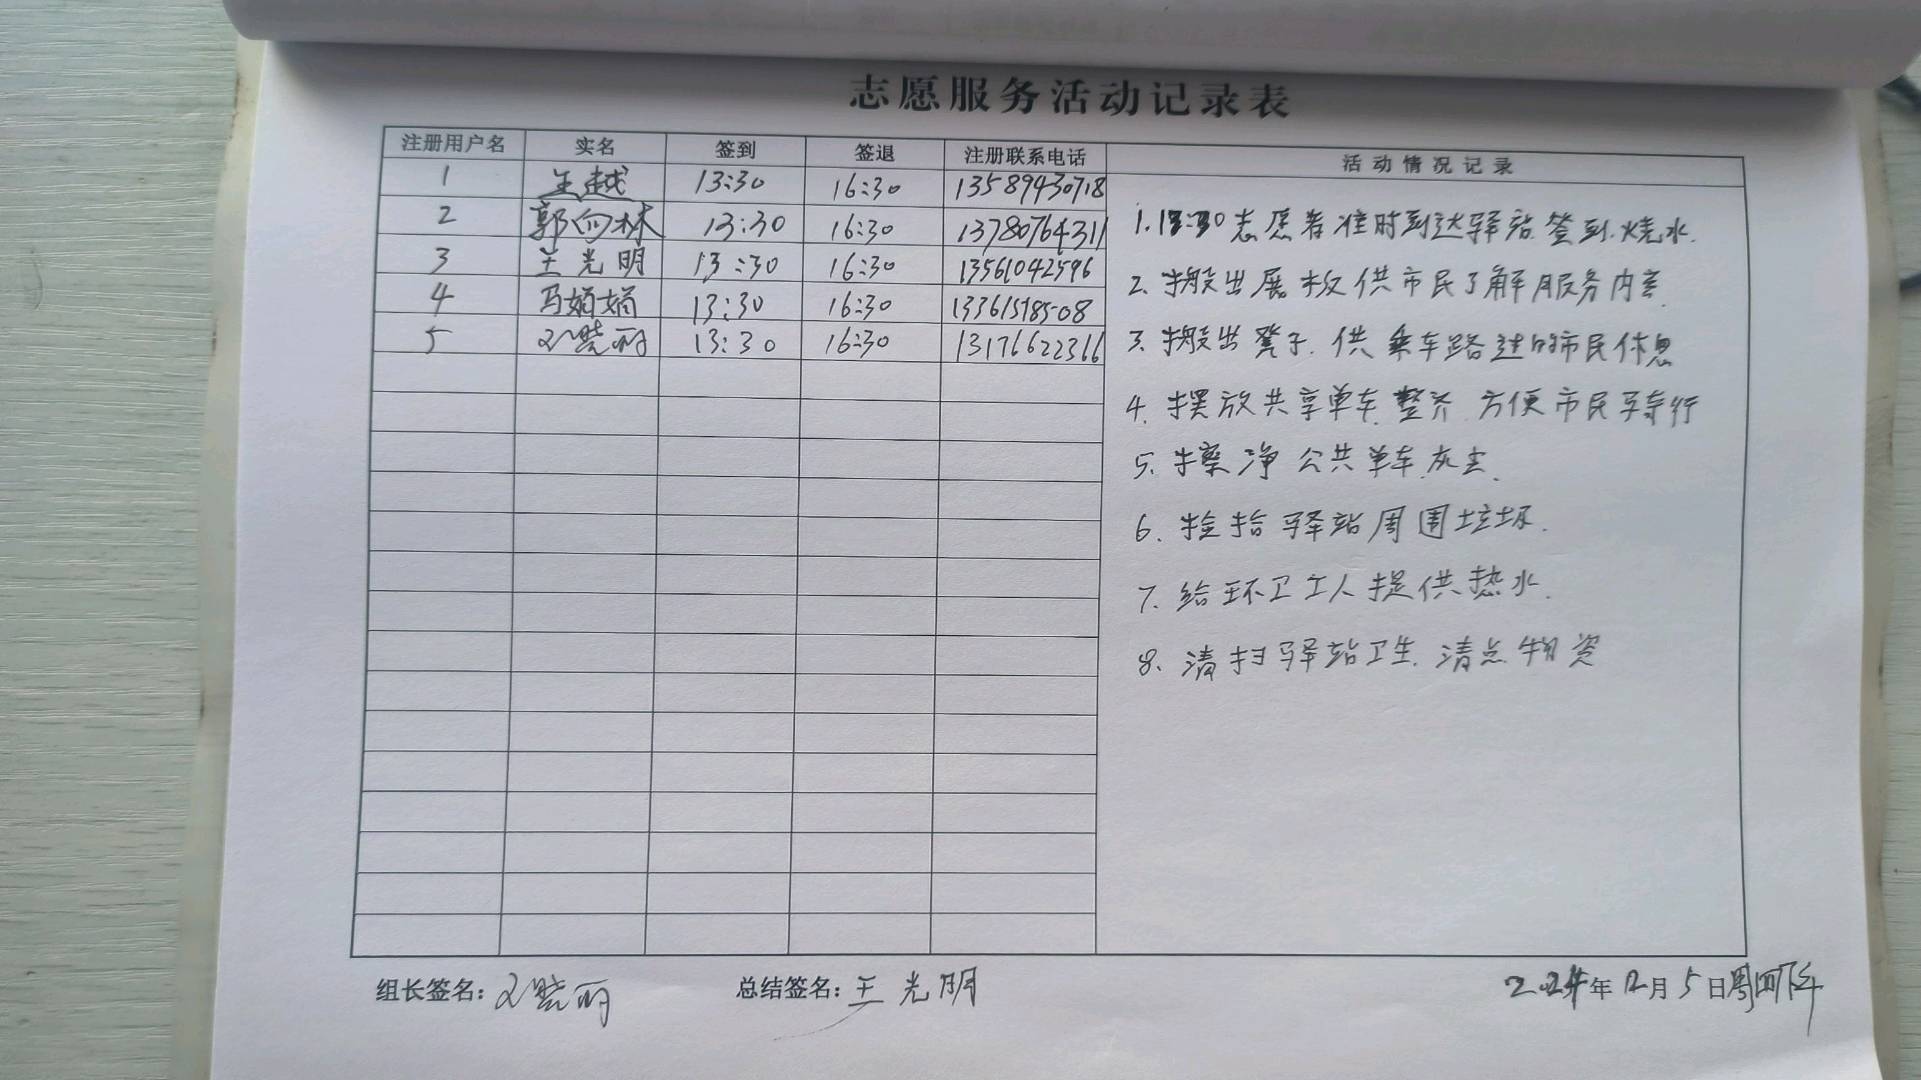 志愿服务活动记录表
注册用户名 实名 签到 签退 注册联系电话 活动情况记录
1 王越 13:30 16:30 13589430718
2 郭向林 13:30 16:30 13780764311
3 王光明 13:30 16:30 13561042596
4 马娟娟 13:30 16:30 13361578508
5 晓丽 13:30 16:30 13176622366
1. 13:30志愿者准时到达驿站.签到.烧水.
2. 搬出展板供市民了解服务内容.
3. 搬出凳子.供乘车路过的市民休息
4. 摆放共享单车.整齐.方便市民骑行
5. 擦净公共单车灰尘.
6. 捡拾驿站周围垃圾.
7. 给环卫工人提供热水.
8. 清扫驿站卫生.清点物资
组长签名: 晓丽 总结签名: 王光明 2024年12月5日周四下午